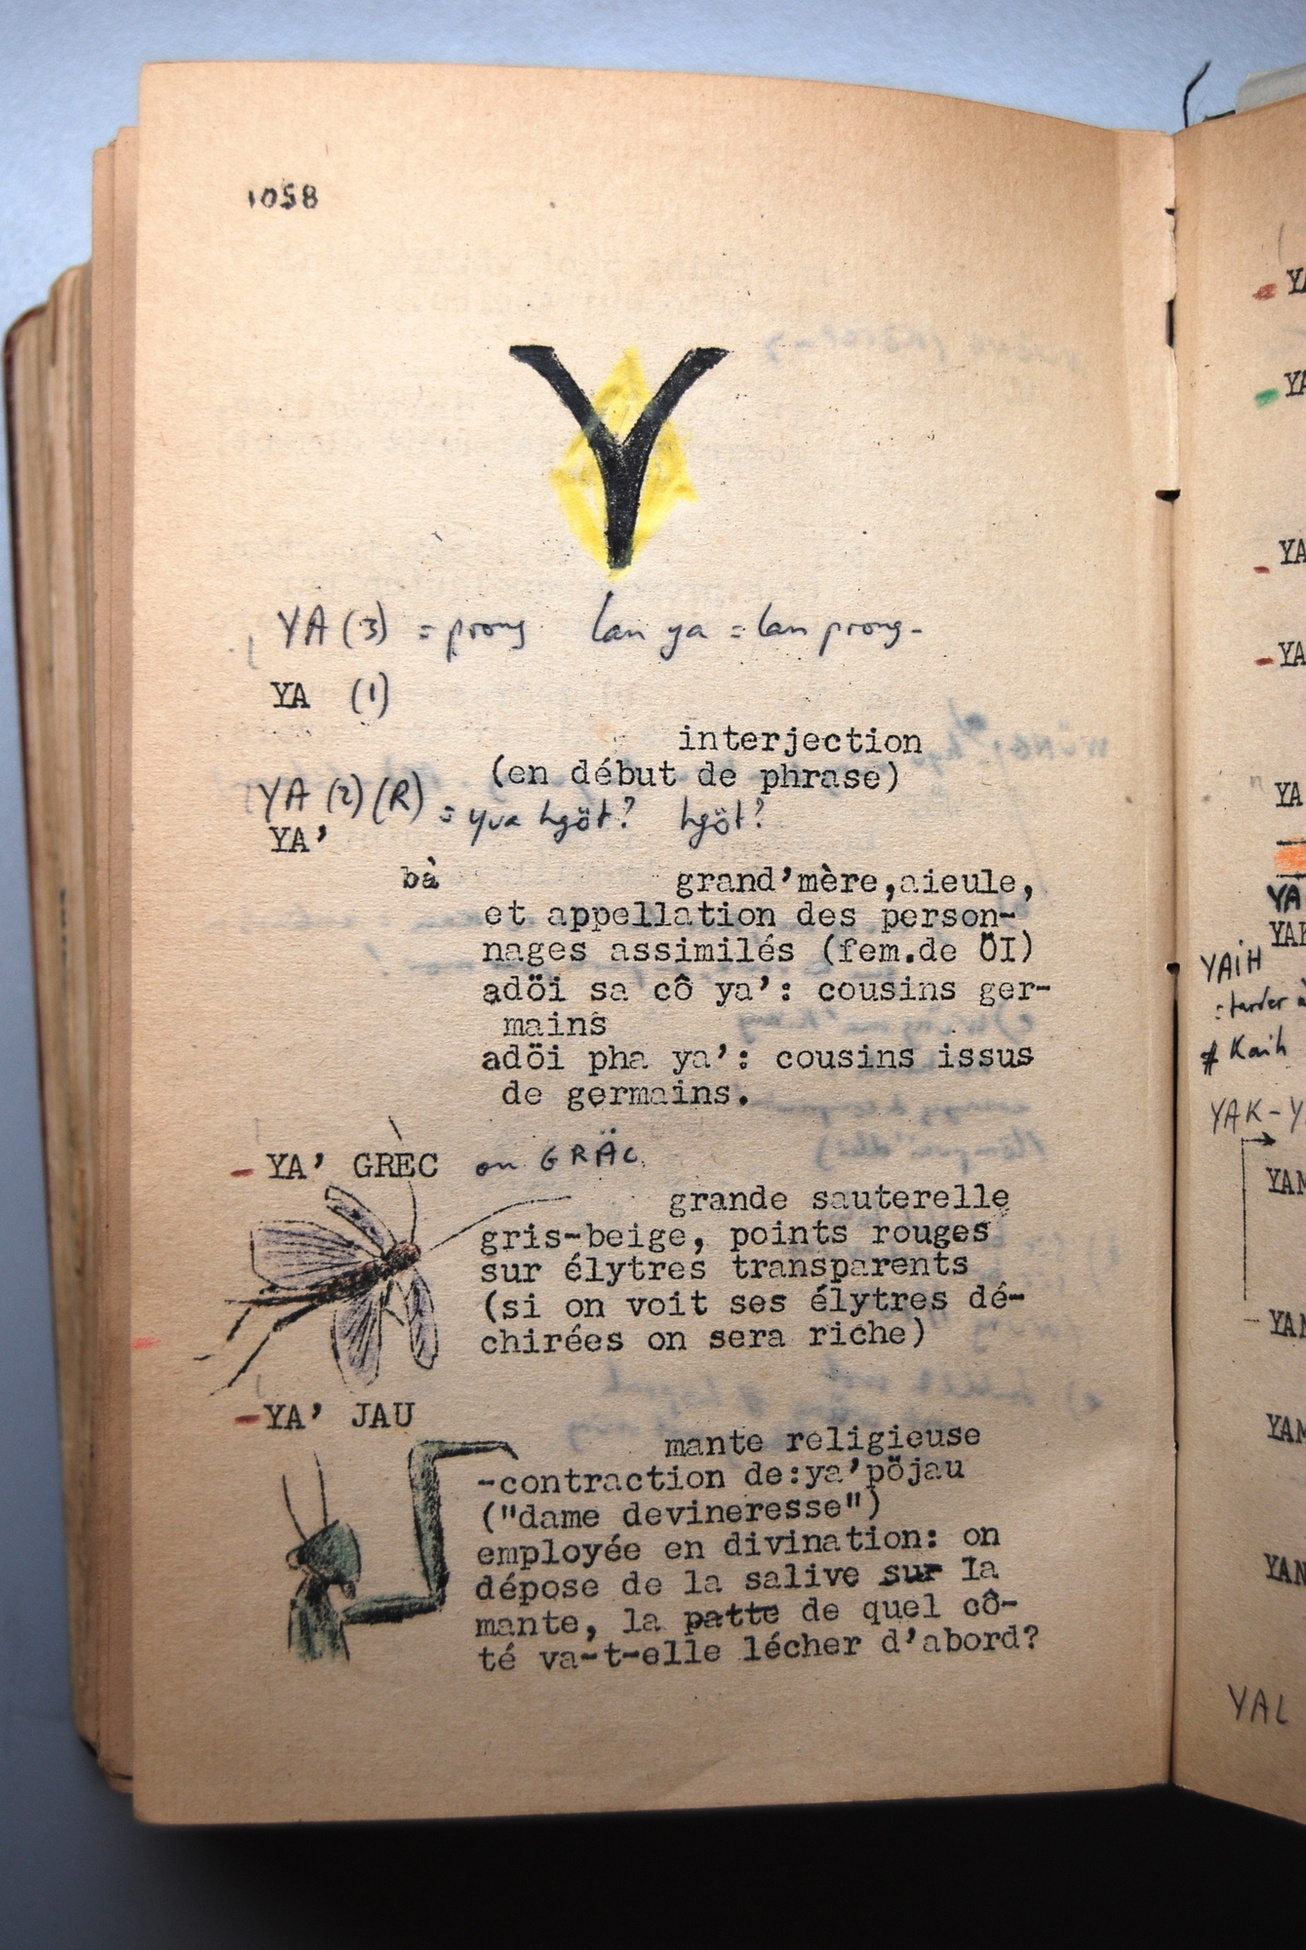 1058
Y
YA (3) = prong lan ya = lan prong-
YA (1)
interjection
(en début de phrase)
YA (2) (R) = yua hgöt? hgöt?
YA'
bà grand'mère,aieule,
et appellation des person-
nages assimilés (fem.de ÖI)
adöi sa cô ya': cousins ger-
mains
adöi pha ya': cousins issus
de germains.
-YA' GREC ou GRÄC
grande sauterelle
gris-beige, points rouges
sur élytres transparents
(si on voit ses élytres dé-
chirées on sera riche)
-YA' JAU
mante religieuse
-contraction de:ya'pöjau
("dame devineresse")
employée en divination: on
dépose de la salive sur la
mante, la patte de quel cô-
té va-t-elle lécher d'abord?
YA
YA
YA
-YA
YA
YA
YAIH
: tarder à
≠ Kaih
YAK-Y
YAL